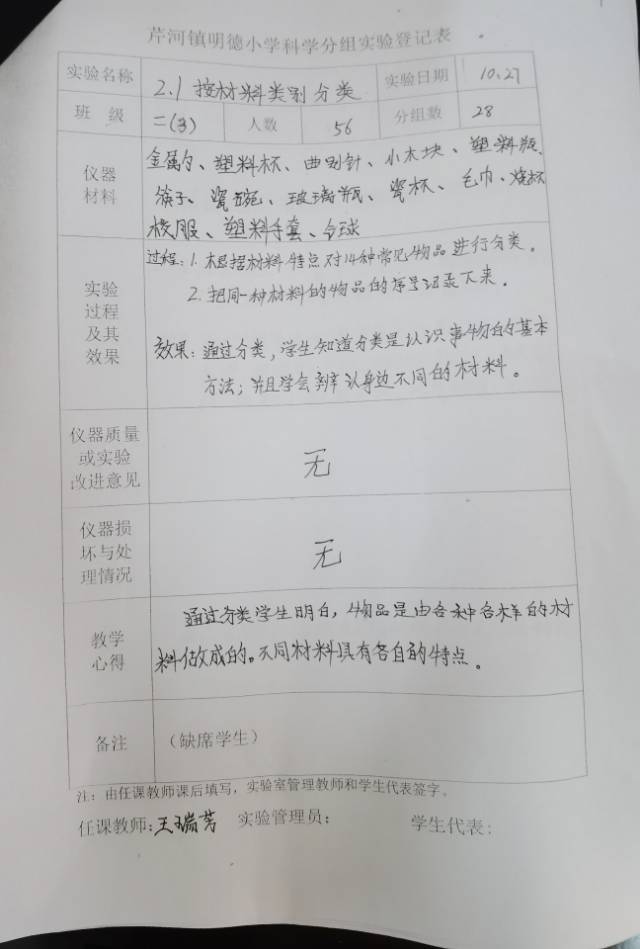 芹河镇明德小学科学分组实验登记表
实验名称 2.1 按材料类别分类 实验日期 10.27
班 级 二(3) 人数 56 分组数 28
仪器
材料
金属勺、塑料杯、曲别针、小木块、塑料瓶、
筷子、瓷碗、玻璃瓶、瓷杯、毛巾、烧杯
校服、塑料手套、仓球
实验
过程
及其
效果
过程:1.根据材料特点对14种常见物品进行分类。
2.把同一种材料的物品的序号记录下来。
效果:通过分类,学生知道分类是认识事物的基本
方法;并且学会辨认身边不同的材料。
仪器质量
或实验
改进意见
无
仪器损
坏与处
理情况
无
教学
心得
通过分类学生明白,物品是由各种各样的材
料做成的。不同材料具有各自的特点。
备注 (缺席学生)
注:由任课教师课后填写,实验室管理教师和学生代表签字。
任课教师:王瑞芳 实验管理员: 学生代表: